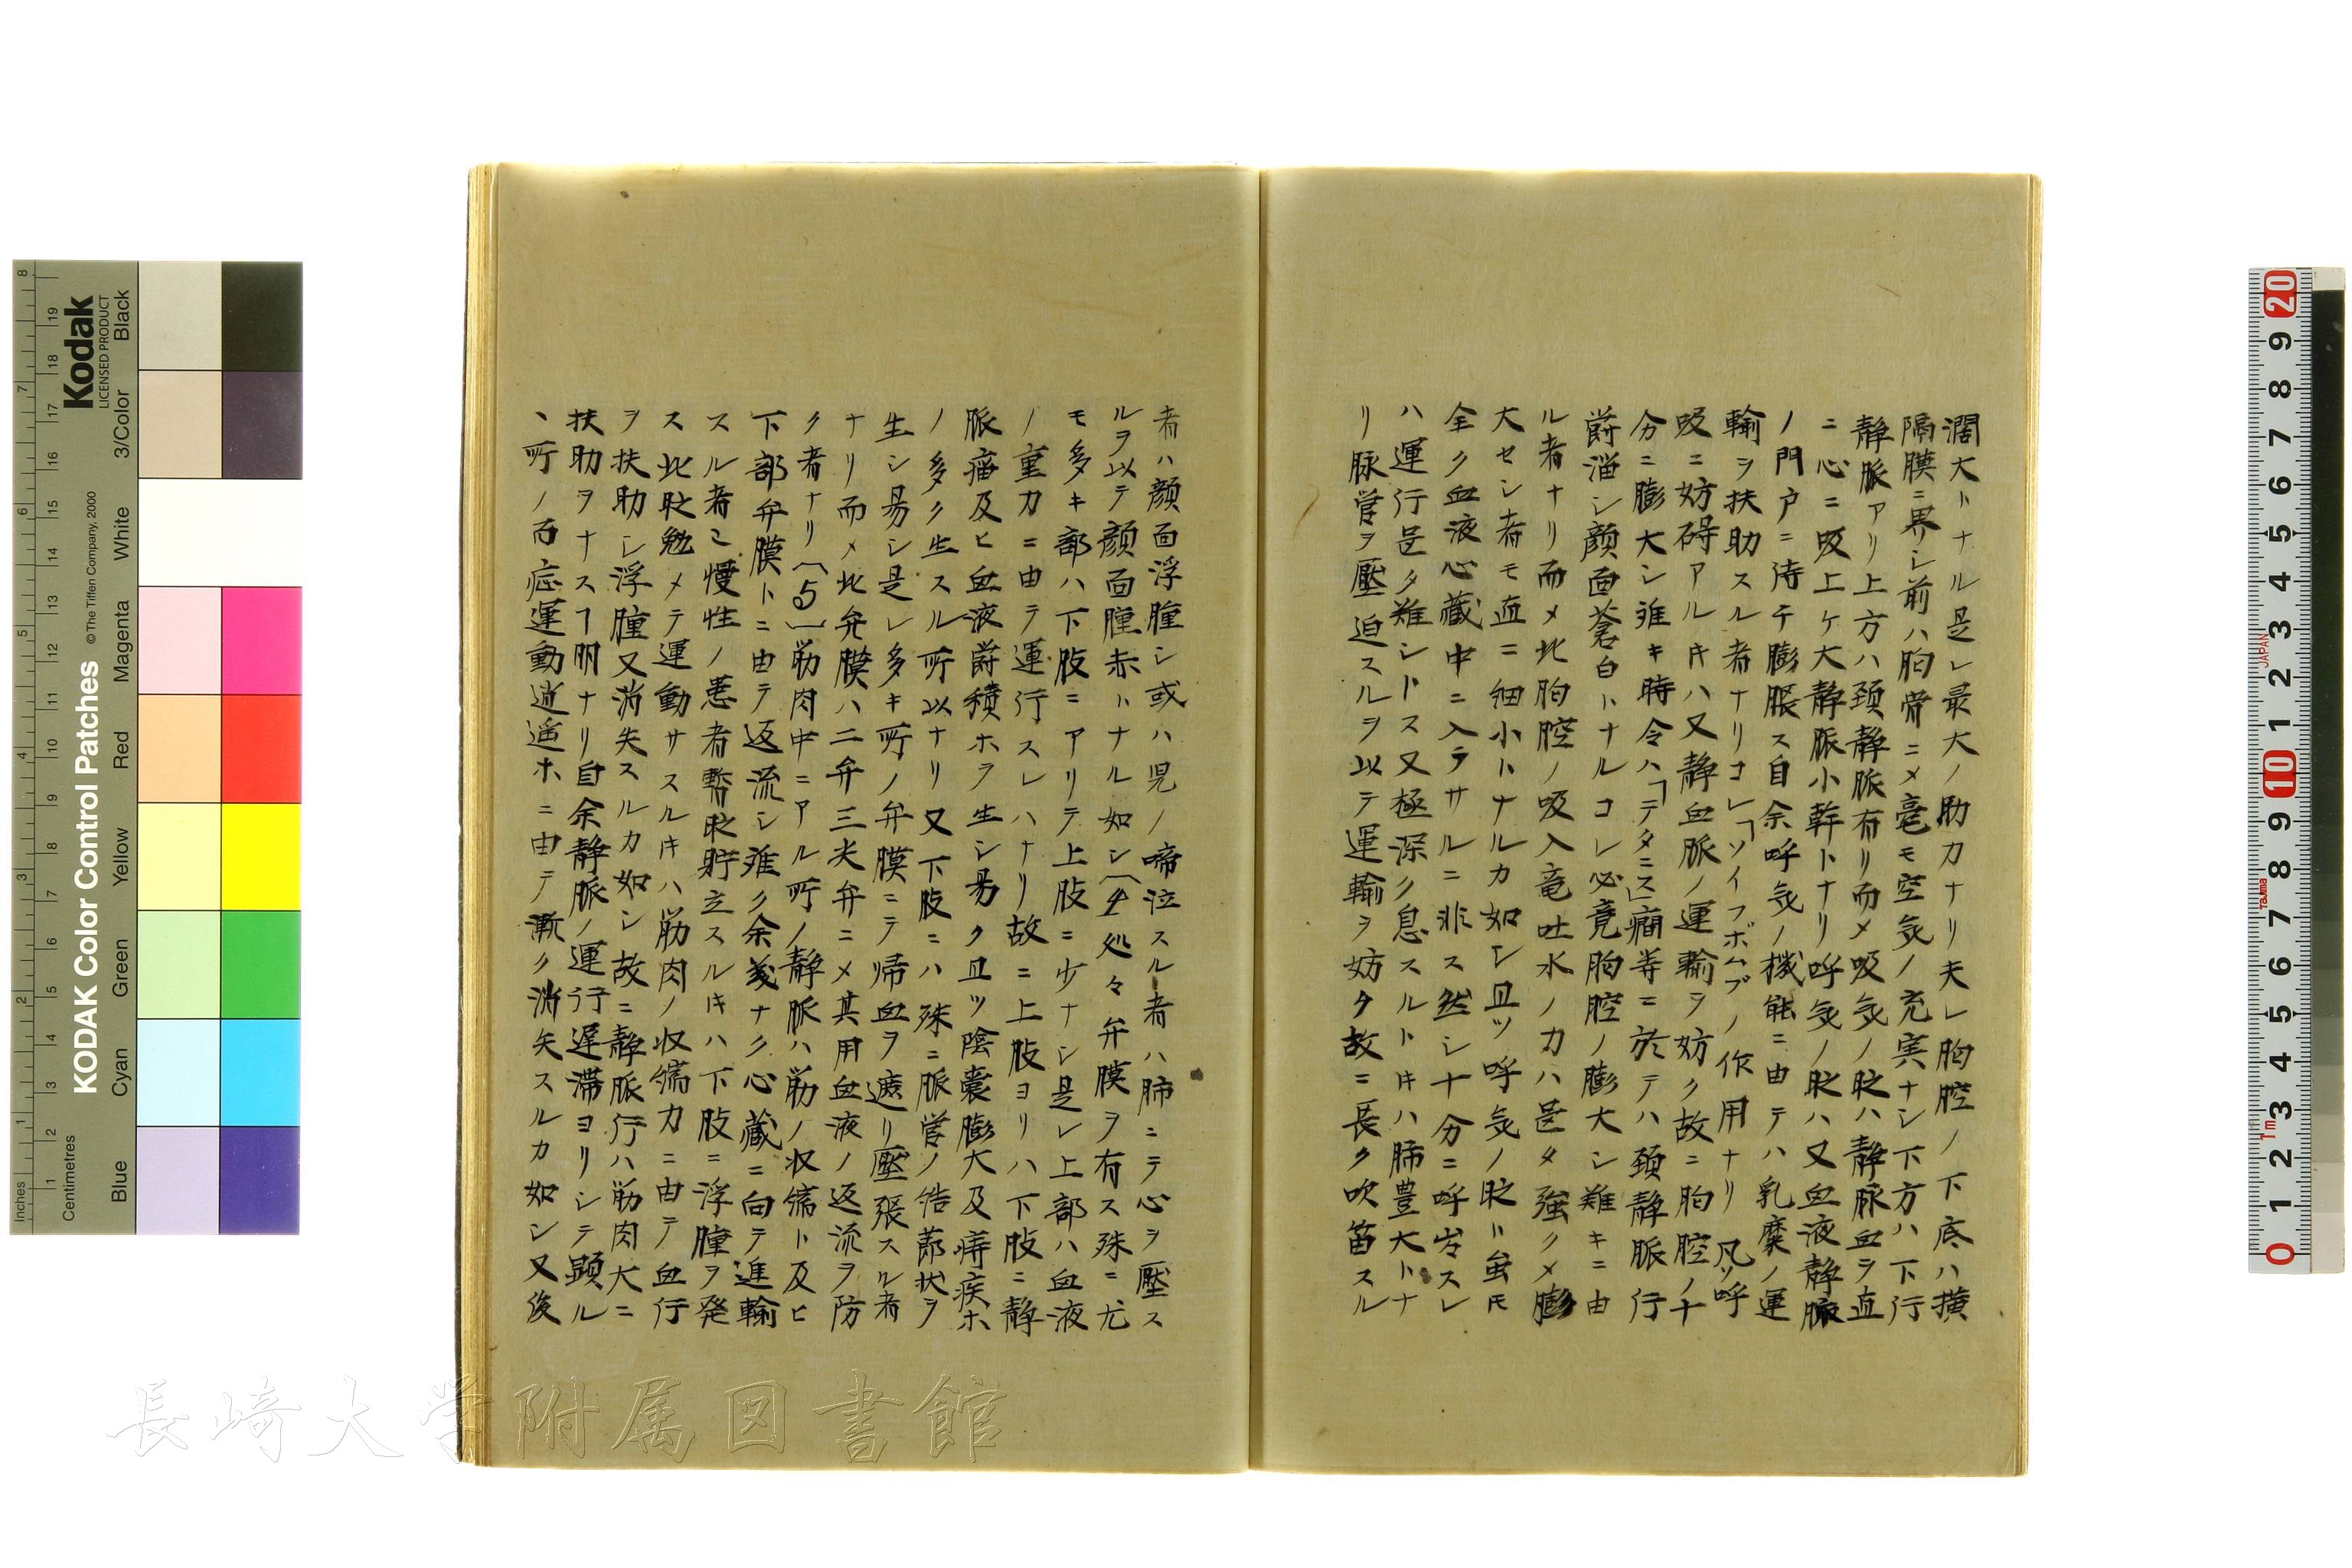 濶大トナル是レ最大ノ助力ナリ夫レ胸腔ノ下底ハ横
隔膜ニ界シ前ハ胸骨ニメ毫モ空気ノ充実ナシ下方ハ下行
静脈アリ上方ハ頚静脈有リ而メ吸気ノ時ハ静脉血ヲ直
ニ心ニ吸上ケ大静脈小幹トナリ呼気ノ時ハ又血液静脈
ノ門戸ニ待チ膨脹ス自余呼気ノ機能ニ由テハ乳糜ノ運
輸ヲ扶助スル者ナリコレ「ソイフボムプノ作用ナリ凡ソ呼
吸ニ妨碍アルキハ又静血脈ノ運輸ヲ妨ク故ニ胸腔ノ十
分ニ膨大シ難キ時令ハ「テタニス」癇等ニ於テハ頚静脈行
欝滞シ顔面蒼白トナルコレ必竟胸腔ノ膨大シ難キニ由
ル者ナリ而メ此胸腔ノ吸入竜吐水ノ力ハ甚タ強クメ膨
大セシ者モ直ニ細小トナルカ如シ且ツ呼気ノ時ト虽𪜈
全ク血液心蔵中ニ入ラサルニ非ス然シ十分ニ呼出スレ
ハ運行甚タ難シトス又極深ク息スルトキハ肺豊大トナ
リ脉管ヲ壓迫スルヲ以テ運輸ヲ妨タ故ニ長ク吹笛スル
者ハ顔面浮腫シ或ハ児ノ啼泣スル者ハ肺ニテ心ヲ壓ス
ルヲ以テ顔面腫赤トナル如シ〔4処々弁膜ヲ有ス殊ニ尤
モ多キ部ハ下肢ニアリテ上肢ニ少ナシ是レ上部ハ血液
ノ重力ニ由テ運行スレハナリ故ニ上肢ヨリハ下肢ニ静
脈瘤及ヒ血液欝積ホヲ生シ易ク且ツ陰嚢膨大及痔疾ホ
ノ多ク生スル所以ナリ又下肢ニハ殊ニ脈管ノ結節状ヲ
生シ易シ是レ多キ所ノ弁膜ニテ帰血ヲ遮リ壓張スル者
ナリ而メ此弁膜ハ二弁三尖弁ニメ其用血液ノ返流ヲ防
ク者ナリ〔5〕筋肉中ニアル所ノ静脈ハ筋ノ収縮ト及ヒ
下部弁膜トニ由テ返流シ難ク余義ナク心蔵ニ向テ進輸
スル者ニ慢性ノ患者暫時貯立スルキハ下肢ニ浮腫ヲ発
ス此時勉メテ運動サスルキハ筋肉ノ収縮力ニ由テ血行
ヲ扶助シ浮腫又消失スルカ如シ故ニ静脈行ハ筋肉大ニ
扶助ヲナスヿ明ナリ自余静脈ノ運行遅滞ヨリシテ顕ル
、所ノ百症運動逍遥ホニ由テ漸ク消矢スルカ如シ又後
長崎大学附属図書館
KODAK Color Control Patches
© The Tiffen Company, 2000
Kodak
LICENSED PRODUCT
Inches
Centimetres
Blue Cyan Green Yellow Red Magenta White 3/Color Black
JAPAN
Tajima